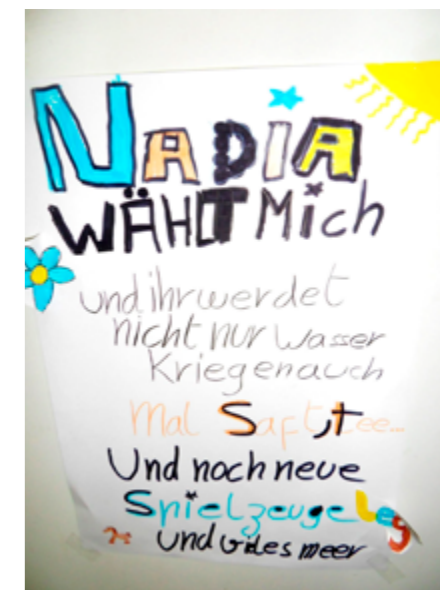 NADIA
WÄHLT Mich
und ihr werdet
nicht nur Wasser
Kriegen auch
Mal Saft, tee...
Und noch neue
Spielzeuge Leg
und viles meer